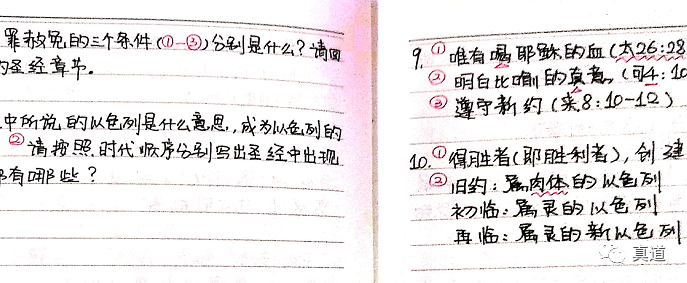 罪赦免的三个条件(①-③)分别是什么?请回
内圣经章节。
中所说的以色列是什么意思,成为以色列的
②请按照时代顺序分别写出圣经中出现
有哪些?
9. ① 唯有喝耶稣的血(太26:28
② 明白比喻的真意。(可4:10
③ 遵守新约(来8:10-12)
10. ① 得胜者(即胜利者),创建
② 旧约:属肉体的以色列
初临:属灵的以色列
再临:属灵的新以色列
真道